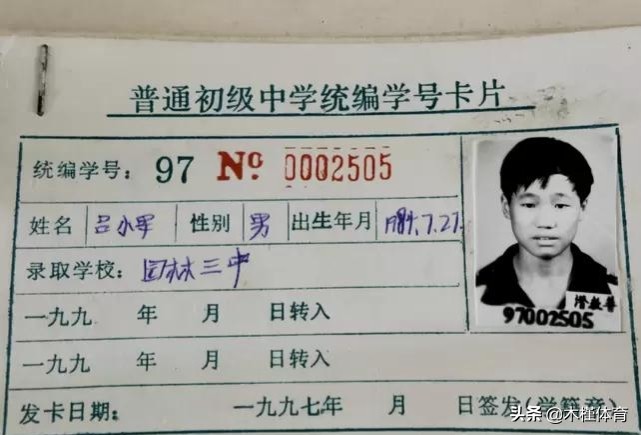 普通初级中学统编学号卡片
统编学号: 97 No. 0002505
姓名 吕小军 性别 男 出生年月 1984.7.27.
录取学校: 园林三中
一九九 年 月 日转入
一九九 年 月 日转入
发卡日期: 一九九七年 月 日签发(学籍章)
普教增
97002505
头条 @木桩体育